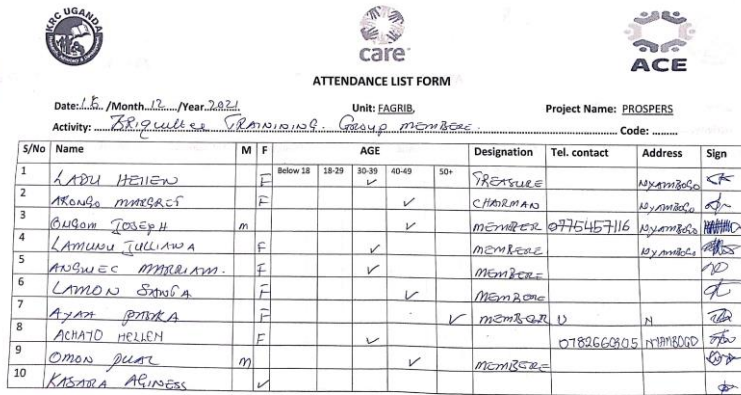 KRC UGANDA
care
ACE
ATTENDANCE LIST FORM
Date: 16 /Month 12 /Year 2021 Unit: FAGRIB, Project Name: PROSPERS
Activity: TRAINING. Group MEMBERE. Code:
S/No Name M F AGE Designation Tel. contact Address Sign
Below 18 18-29 30-39 40-49 50+
1 LADU HELLEN F ✓ TREASURE NYAMBOGO
2 AKONGO MARGRET F ✓ CHAIRMAN NYAMBOGO
3 ONGOM JOSEPH m ✓ MEMBER 0775457116 NYAMBOGO
4 LAMUNU JULLIANA F ✓ MEMBERE NYAMBOGO
5 ANGWEC MARRIAM. F ✓ MEMBERE
6 LAMON SANGA F ✓ MEMBERE
7 AYAA F ✓ MEMBER U N
8 ACHAYO HELLEN F ✓ 0782660305 NYAMBOGO
9 OMON m ✓ MEMBERE
10 KASARA AGINESS ✓